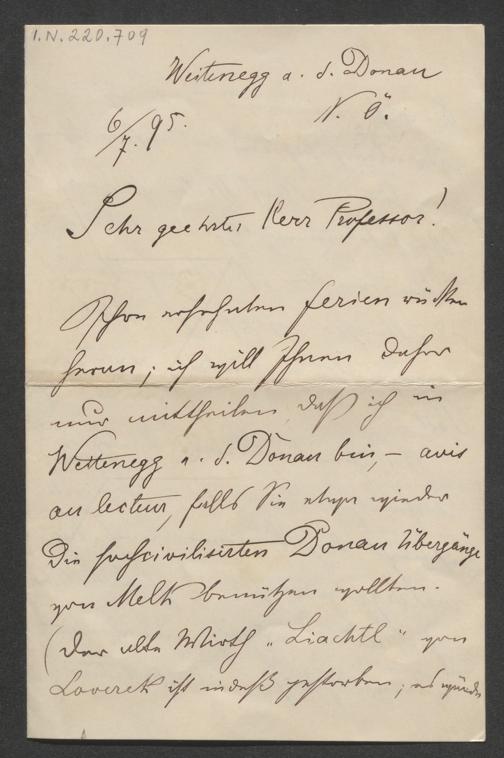 I.N. 220.709
Weitenegg a. d. Donau
N. Ö.
6/7. 95.
Sehr geehrter Herr Professor!
Ihre ersehnten Ferien rücken
heran; ich will Ihnen daher
nur mittheilen, daß ich in
Weitenegg a. d. Donau bin, – avis
au lecteur, falls Sie etwa wieder
die hochcivilisirten Donau Übergänge
von Melk benützen wollten.
(Der alte Wirth „Liachtl“ von
ist indeß gestorben; es würde